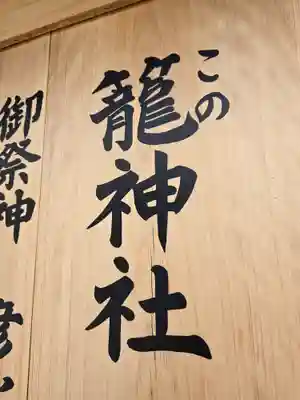 この
籠神社
御祭神 彦